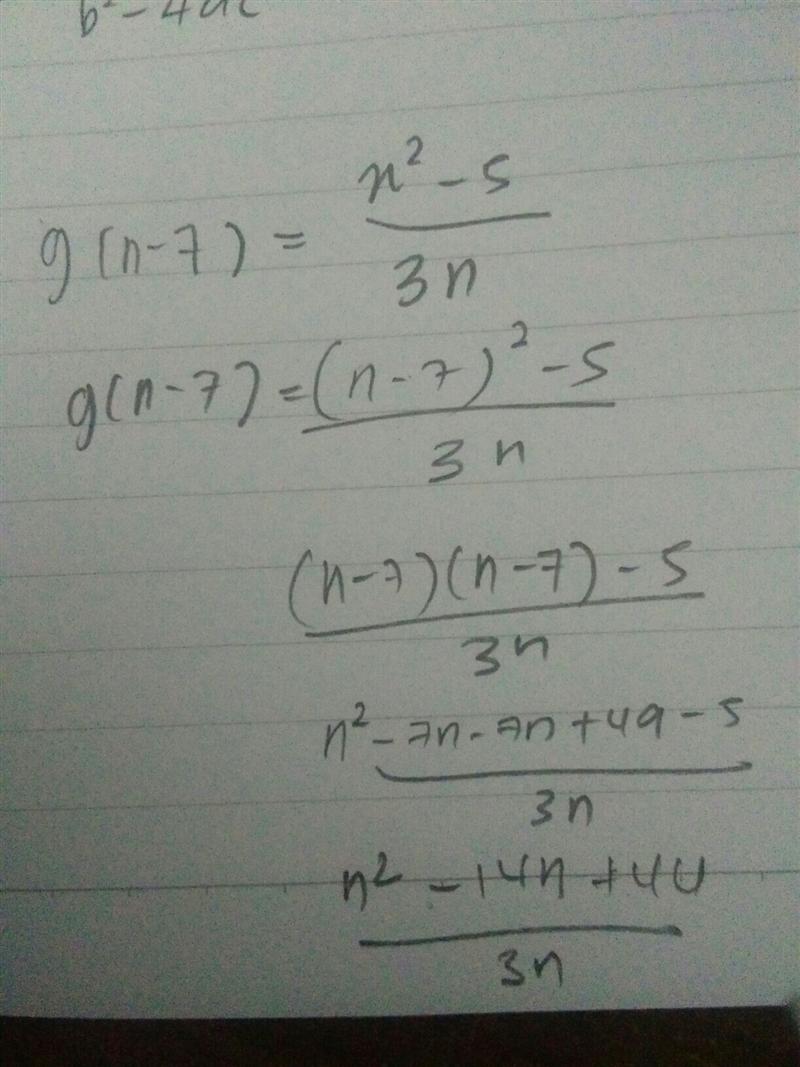 b²-4ac
g(n-7) = n²-5 / 3n
g(n-7) = (n-7)²-5 / 3n
(n-7)(n-7)-5 / 3n
n²-7n-7n+49-5 / 3n
n²-14n+44 / 3n